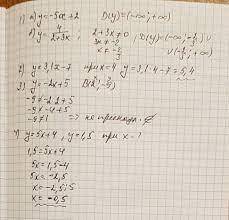 1) а) y=-5x+2 D(y)=(-∞;+∞)
б) y= 4/(2+3x) 2+3x≠0 D(y)=(-∞;-2/3)∪
3x≠-2 ∪(-2/3;+∞)
x≠-2/3
2) y=3,1x-7 при x=4 y=3,1·4-7=5,4
3) y=-2x+5
-9≠-2·2+5
-9≠-4+5
-9≠1 =>
4) y=5x+4, y=1,5 при x-?
1,5=5x+4
5x=1,5-4
5x=-2,5
x=-2,5:5
x=-0,5